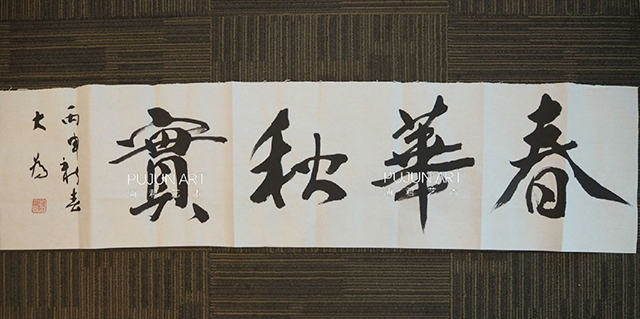 春華秋實
丙申新春
大為
PUJUN ART
PUJUN ART